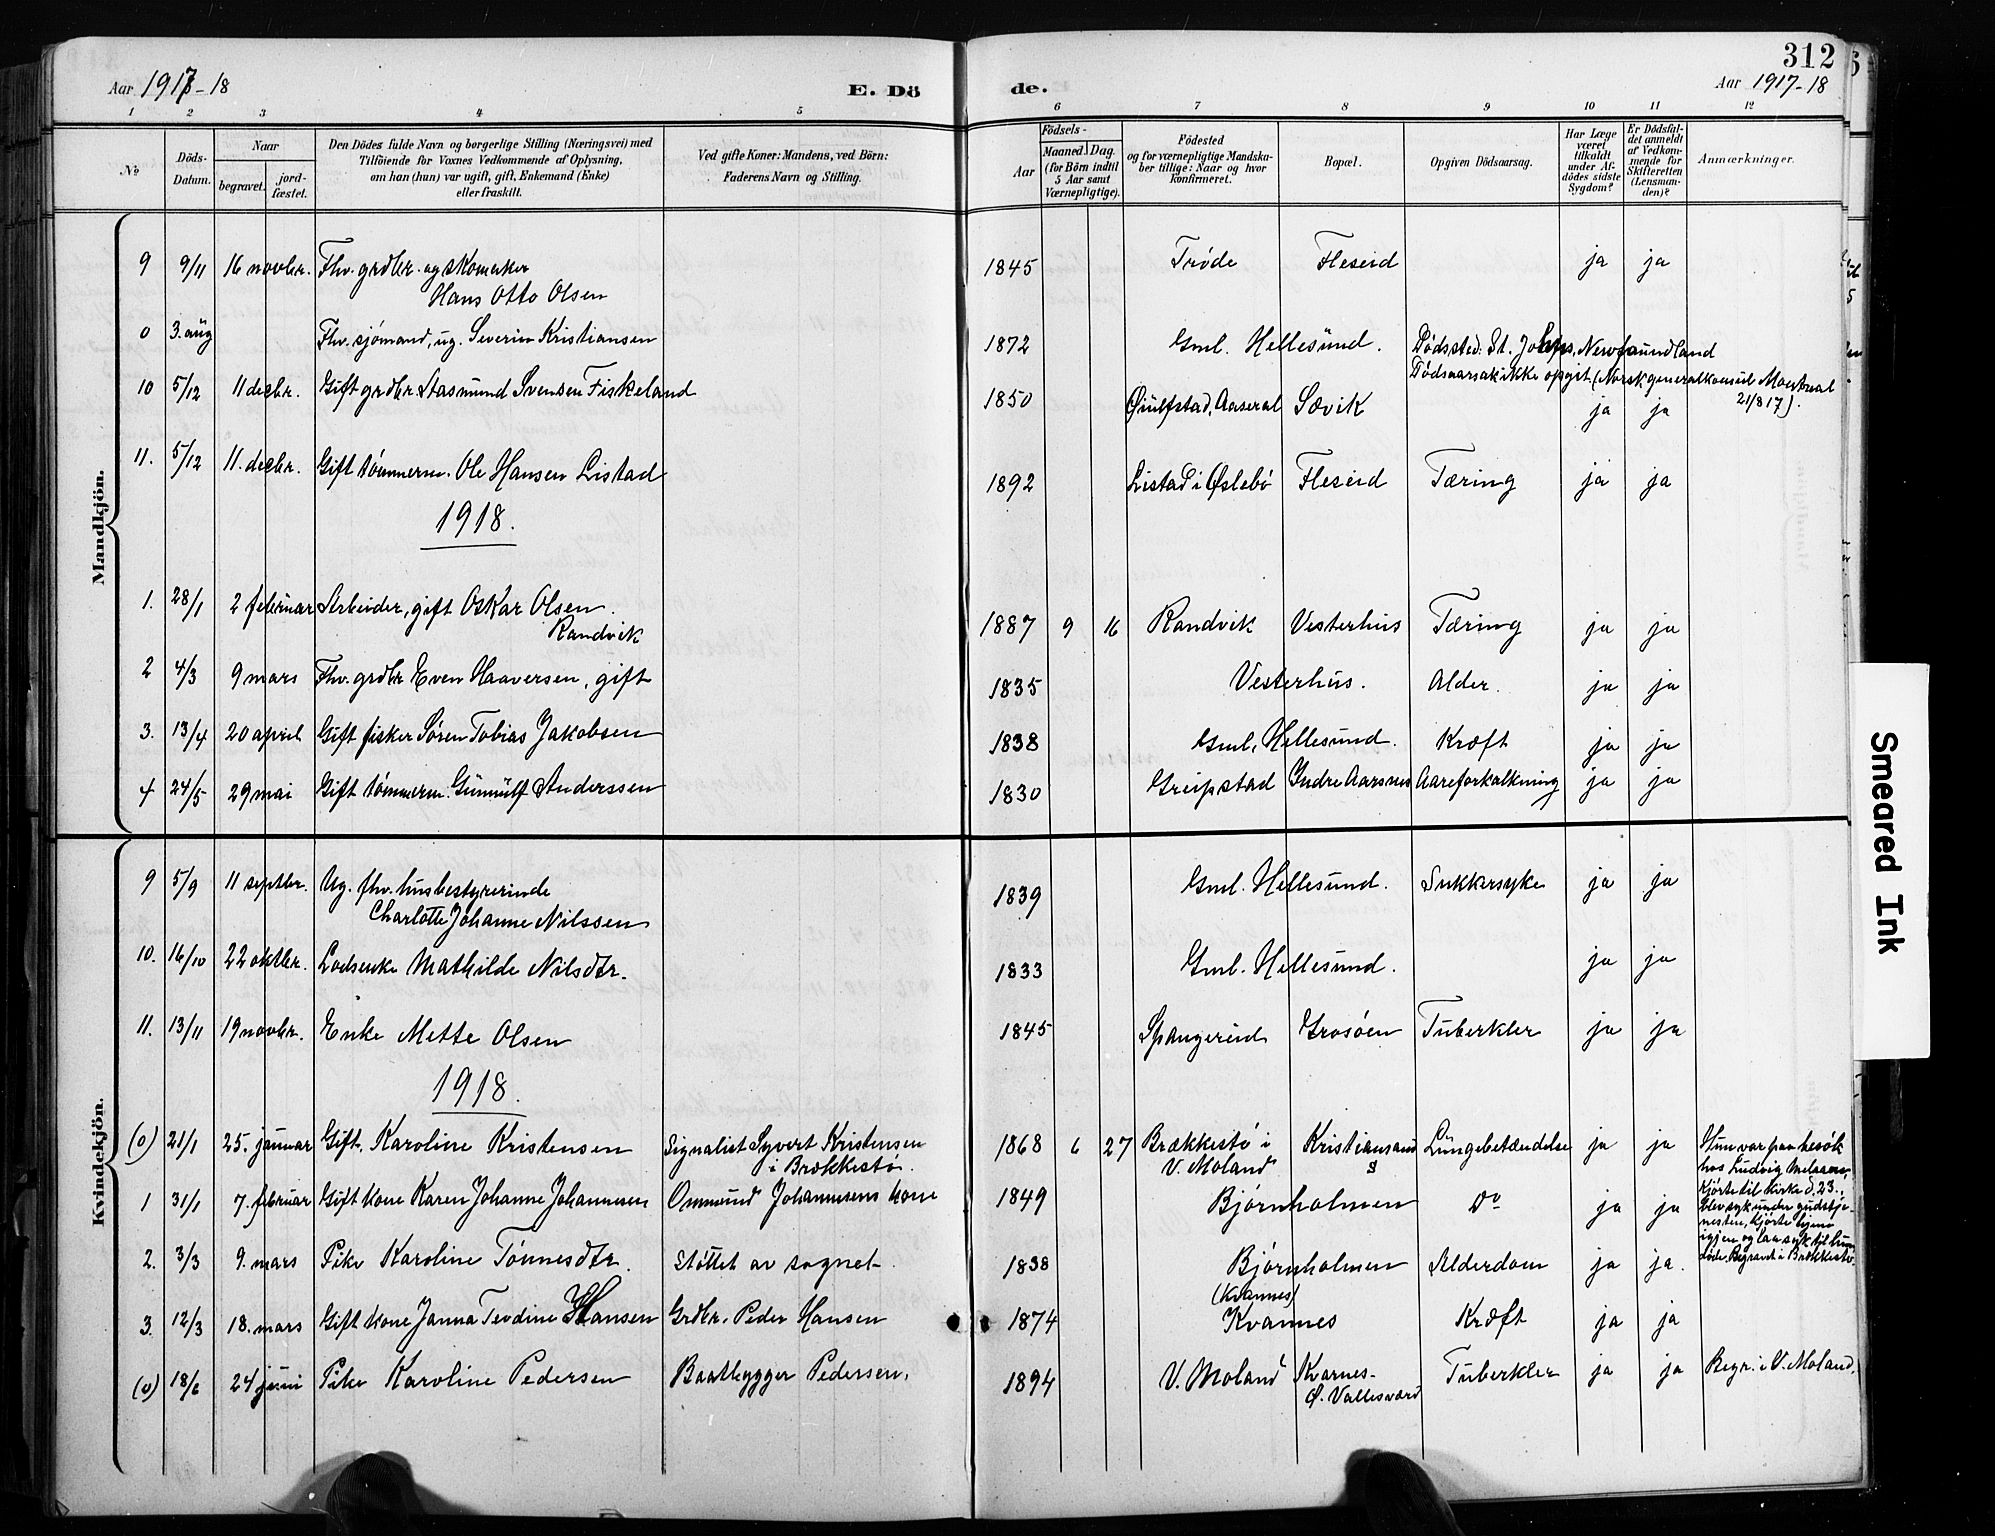 312
Aar 1917-18 E. Dö de. Aar 1917-18
1 2 3 4 5 6 7 8 9 10 11 12
No
Döds-Datum.
Naar
begravet.
jord-fæstet.
Den Dödes fulde Navn og borgerlige Stilling (Næringsvei) med
Tilföiende for Voxnes Vedkommende af Oplysning,
om han (hun) var ugift, gift, Enkemand (Enke)
eller fraskilt.
Ved gifte Koner: Mandens, ved Börn:
Faderens Navn og Stilling.
Födsels-
Aar
Maaned. Dag.
(for Börn indtil
5 Aar samt
Værnepligtige).
Födested
og for værnepligtige Mandska-
ber tillige: Naar og hvor
konfirmeret.
Bopæl.
Opgiven Dödsaarsag.
Har Læge
været
tilkaldt
under Af-
dödes sidste
Sygdom?
Er Dödsfal-
det anmeldt
af Vedkom-
mende for
Skifteretten
(Lensman-
den)?
Anmærkninger.
Mandkjön.
9 9/11 16 novbr. Fhv. grdbr. og skomaker 1845 Trøde Fleseid ja ja
Hans Otto Olsen
0 3. aug Fhv. sjømand, ug. Severin Kristiansen 1872 Gml. Hellesund. Dødssted: St. Johns, Newfoundland
Dødsaarsak ikke opgit (Norsk generalkonsul Montreal
21/8 17).
10 5/12 11 decbr. Gift grdbr. Stasmund Svensen Fiskeland 1850 Øiulfstad, Aaseral Søvik ja ja
11. 5/12 11. decbr. Gift tømmerm. Ole Hansen Listad 1892 Listad i Øslebø Fleseid Tæring ja ja
1918.
1. 28/1 2 februar Arbeider, gift Oskar Olsen 1887 9 16 Randvik Vesterhus Tæring ja ja
Randvik
2 4/3 9 mars Fhv. grdbr Even Haaversen, gift 1835 Vesterhus. Alder. ja ja
3. 13/4 20 april Gift fisker Søren Tobias Jakobsen 1838 Gml. Hellesund. Kræft ja ja
4 24/5 29 mai Gift tømmerm. Gunnulf Anderssen 1830 Greipstad Indre Aarsnes Aareforkalkning ja ja
Kvindekjön.
9 5/9 11 septbr. Ug. fhv. husbestyrerinde 1839 Gml. Hellesund. Sukkersyke ja ja
Charlotte Johanne Nilssen
10. 16/10 22 oktbr. Lodsenke Mathilde Nilsdtr. 1833 Gml. Hellesund. ja ja
11. 13/11 19 novbr. Enke Mette Olsen 1845 Spangereid Grosøen Tuberkler ja ja
1918.
(0) 21/1 25. januar Gift. Karoline Kristensen Signalist Syvert Kristensen 1868 6 27 Brækkestø i Kristiansand Lungebetændelse ja ja
i Brækkestø. V. Moland S
Hun var paa besøk
hos Ludvig Nilssens,
kjørte til kirke d. 23.,
blev syk under gudstje-
nesten, kjørte hjem
igjen og laa syk til hun
døde. Begravet i Brækkestø.
1 31/1 7. februar Gift kone Karen Johanne Johannessen Ommund Johannesens kone 1849 Bjørnholmen Do ja ja
2. 3/3 9. mars Pike Karoline Tønnesdtr. Støttet av sognet 1838 Bjørnholmen Alderdom ja ja.
(Kvannes)
3. 12/3 18. mars Gift kone Janna Teodine Hansen Grdbr. Peder Hansen 1874 Kvannes Kræft ja ja
(0) 18/6 24 juni Pike Karoline Pedersen Baatbygger Pedersen, 1894 V. Moland Kvarnes- Tuberkler ja ja Begr. i V. Moland.
Ø. Vallesværd
Smeared Ink